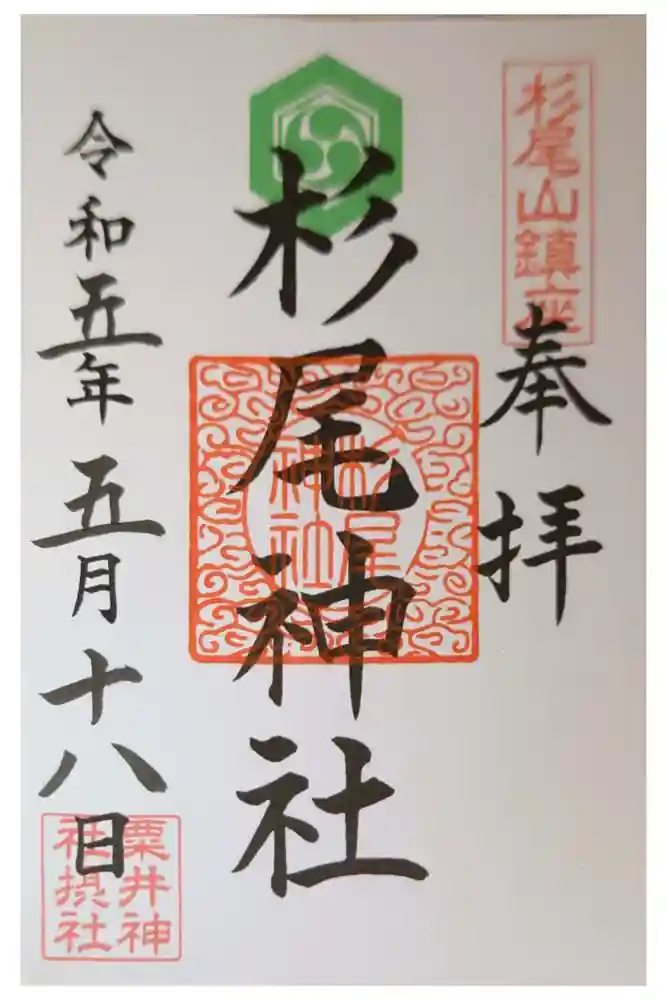 杉尾山鎮座
奉拝
杉尾神社
杉尾
神社
令和五年五月十八日
粟井神
社摂社